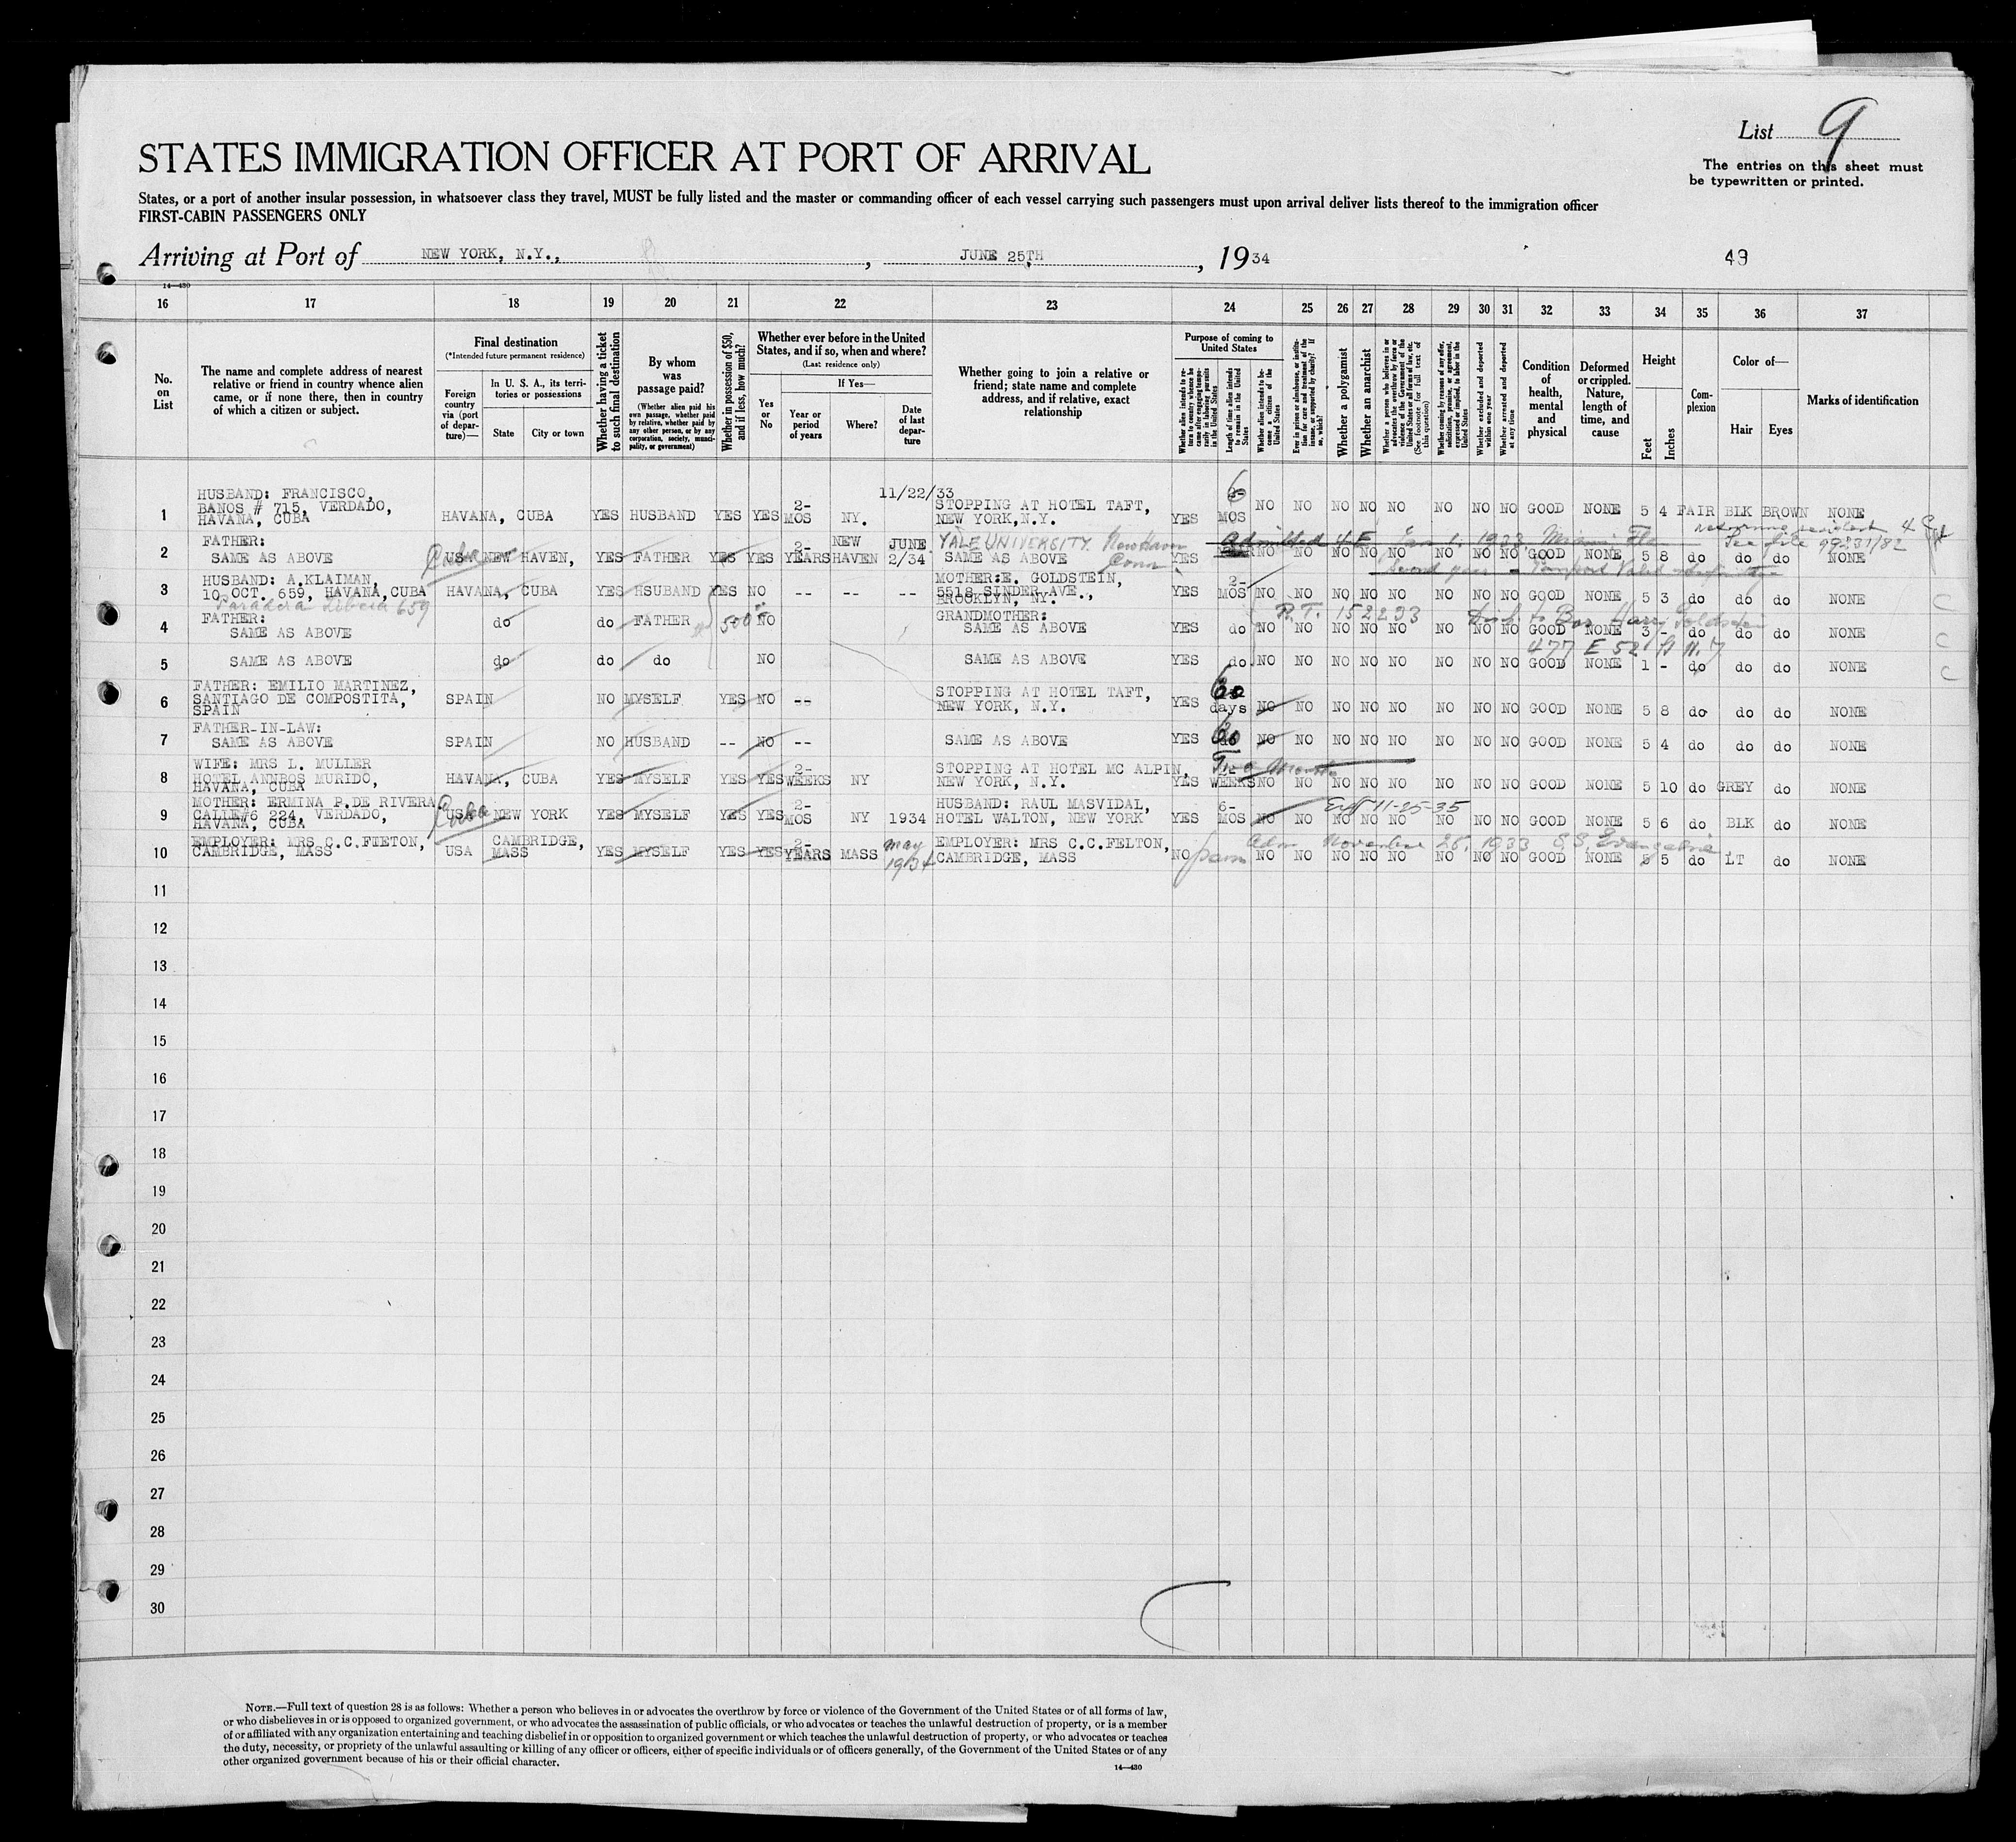 List 9
The entries on this sheet must
be typewritten or printed.
STATES IMMIGRATION OFFICER AT PORT OF ARRIVAL
States, or a port of another insular possession, in whatsoever class they travel, MUST be fully listed and the master or commanding officer of each vessel carrying such passengers must upon arrival deliver lists thereof to the immigration officer
FIRST-CABIN PASSENGERS ONLY
Arriving at Port of NEW YORK, N.Y., , JUNE 25TH , 1934 49
14—430
16 17 18 19 20 21 22 23 24 25 26 27 28 29 30 31 32 33 34 35 36 37
No. on List
The name and complete address of nearest relative or friend in country whence alien came, or if none there, then in country of which a citizen or subject.
Final destination
(*Intended future permanent residence)
Foreign country via (port of departure)—
In U. S. A., its territories or possessions
State City or town
Whether having a ticket to such final destination
By whom was passage paid?
(Whether alien paid his own passage, whether paid by relative, whether paid by any other person, or by any corporation, society, municipality, or government)
Whether in possession of $50, and if less, how much?
Whether ever before in the United States, and if so, when and where?
(Last residence only)
Yes or No
If Yes—
Year or period of years
Where?
Date of last departure
Whether going to join a relative or friend; state name and complete address, and if relative, exact relationship
Purpose of coming to United States
Length of time alien intends to remain in the United States
Whether alien intends to become a citizen of the United States
Whether a polygamist
Whether an anarchist
Whether excluded and deported within one year
Whether arrested and deported at any time
Condition of health, mental and physical
Deformed or crippled. Nature, length of time, and cause
Height
Feet Inches
Complexion
Color of—
Hair Eyes
Marks of identification
1 HUSBAND: FRANCISCO, BANOS # 715, VERDADO, HAVANA, CUBA HAVANA, CUBA YES HUSBAND YES YES 2- MOS NY. 11/22/33 STOPPING AT HOTEL TAFT, NEW YORK,N.Y. YES 6 MOS NO NO NO NO NO NO NO NO GOOD NONE 5 4 FAIR BLK BROWN NONE
2 FATHER: SAME AS ABOVE Cuba USA NEW HAVEN, YES FATHER YES YES 2- YEARS NEW HAVEN JUNE 2/34 YALE UNIVERSITY. New Haven Conn SAME AS ABOVE YES NO NO NO NO NO NO NO NO GOOD NONE 5 8 do do do NONE
Admitted 4-E 1, 1933 Miami Fla
returning resident 4
See file 99231/82
3 HUSBAND: A.KLAIMAN, 10 OCT. 659, HAVANA,CUBA HAVANA, CUBA YES HSUBAND YES NO -- -- -- MOTHER:E. GOLDSTEIN, 5518 SINDER AVE., BROOKLYN, NY. YES 2- MOS NO NO NO NO NO NO NO NO GOOD NONE 5 3 do do do NONE
659
4 FATHER: SAME AS ABOVE do do FATHER 500 NO GRANDMOTHER: SAME AS ABOVE YES do NO NO NO NO NO NO NO NO GOOD NONE 3 - do do do NONE
R.T. 152233 Harry Goldstein
477 E 52 St N.Y
5 SAME AS ABOVE do do do NO SAME AS ABOVE YES do NO NO NO NO NO NO NO NO GOOD NONE 1 - do do do NONE
6 FATHER: EMILIO MARTINEZ, SANTIAGO DE COMPOSTITA, SPAIN SPAIN NO MYSELF YES NO -- STOPPING AT HOTEL TAFT, NEW YORK, N.Y. YES 60 days NO NO NO NO NO NO NO NO GOOD NONE 5 8 do do do NONE
7 FATHER-IN-LAW: SAME AS ABOVE SPAIN NO HUSBAND -- NO -- SAME AS ABOVE YES 60 NO NO NO NO NO NO NO NO GOOD NONE 5 4 do do do NONE
8 WIFE: MRS L. MULLER HOTEL ANNBOS MURIDO, HAVANA, CUBA HAVANA, CUBA YES MYSELF YES YES 2- WEEKS NY STOPPING AT HOTEL MC ALPIN, NEW YORK, N.Y. YES Two Months WEEKS NO NO NO NO NO NO NO NO GOOD NONE 5 10 do GREY do NONE
9 MOTHER: ERMINA P.DE RIVERA CALLE#6 224, VERDADO, HAVANA, CUBA Cuba USA NEW YORK YES MYSELF YES YES 2- MOS NY 1934 HUSBAND: RAUL MASVIDAL, HOTEL WALTON, NEW YORK YES 6- MOS NO NO NO NO NO NO NO NO GOOD NONE 5 6 do BLK do NONE
11-25-35
10 EMPLOYER: MRS C.C.FIETON, CAMBRIDGE, MASS USA CAMBRIDGE, MASS YES MYSELF YES YES 2- YEARS MASS May 1934 EMPLOYER: MRS C.C.FELTON, CAMBRIDGE, MASS NO perm NO NO NO NO NO NO NO NO GOOD NONE 5 5 do LT do NONE
Adm November 25, 1933 S.S. Evangeline
11
12
13
14
15
16
17
18
19
20
21
22
23
24
25
26
27
28
29
30
NOTE.—Full text of question 28 is as follows: Whether a person who believes in or advocates the overthrow by force or violence of the Government of the United States or of all forms of law,
or who disbelieves in or is opposed to organized government, or who advocates the assassination of public officials, or who advocates or teaches the unlawful destruction of property, or is a member
of or affiliated with any organization entertaining and teaching disbelief in or opposition to organized government or which teaches the unlawful destruction of property, or who advocates or teaches
the duty, necessity, or propriety of the unlawful assaulting or killing of any officer or officers, either of specific individuals or of officers generally, of the Government of the United States or of any
other organized government because of his or their official character.
14—430